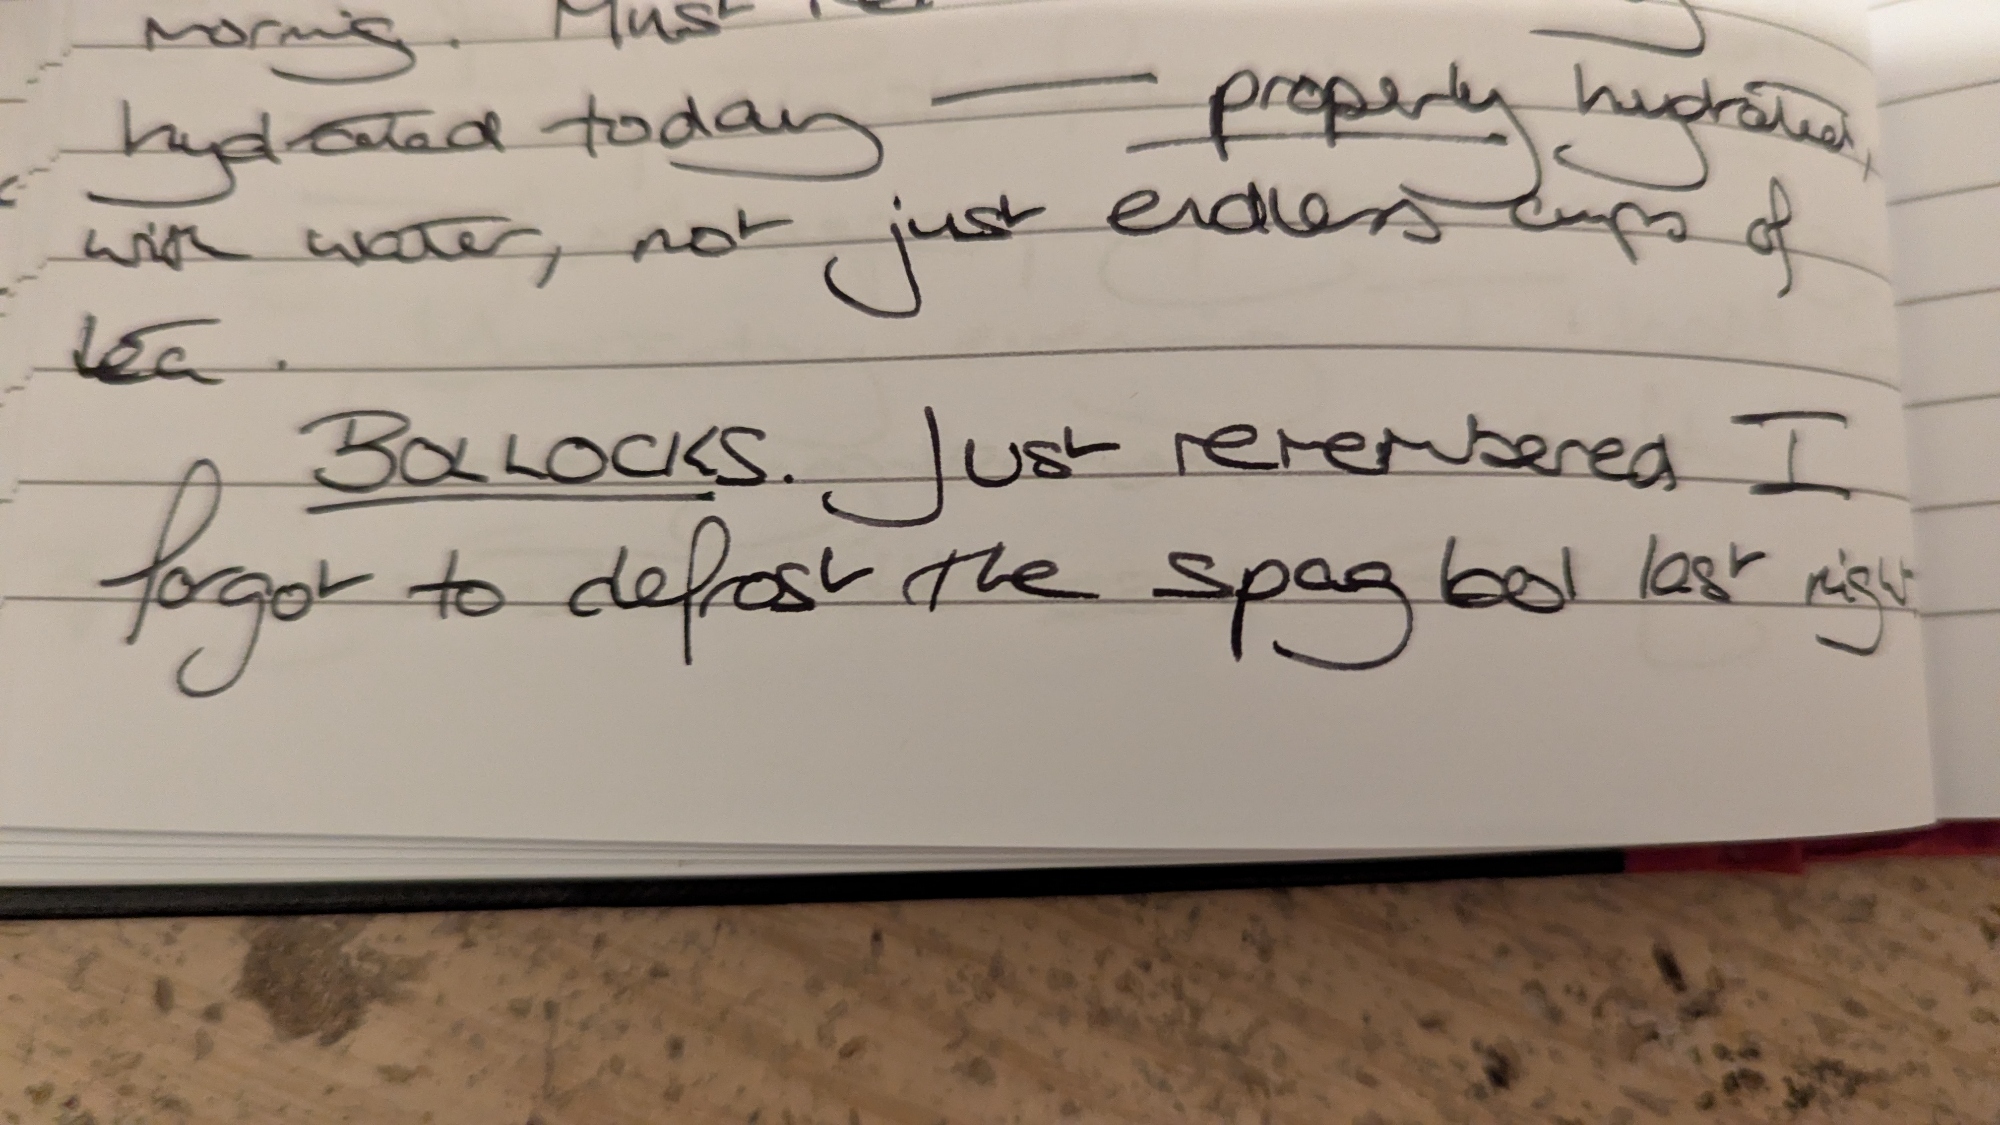 morning. Must
hydrated today — properly hydrated,
with water, not just endless cups of
tea.
BOLLOCKS. Just remembered I
forgot to defrost the spag bol last night